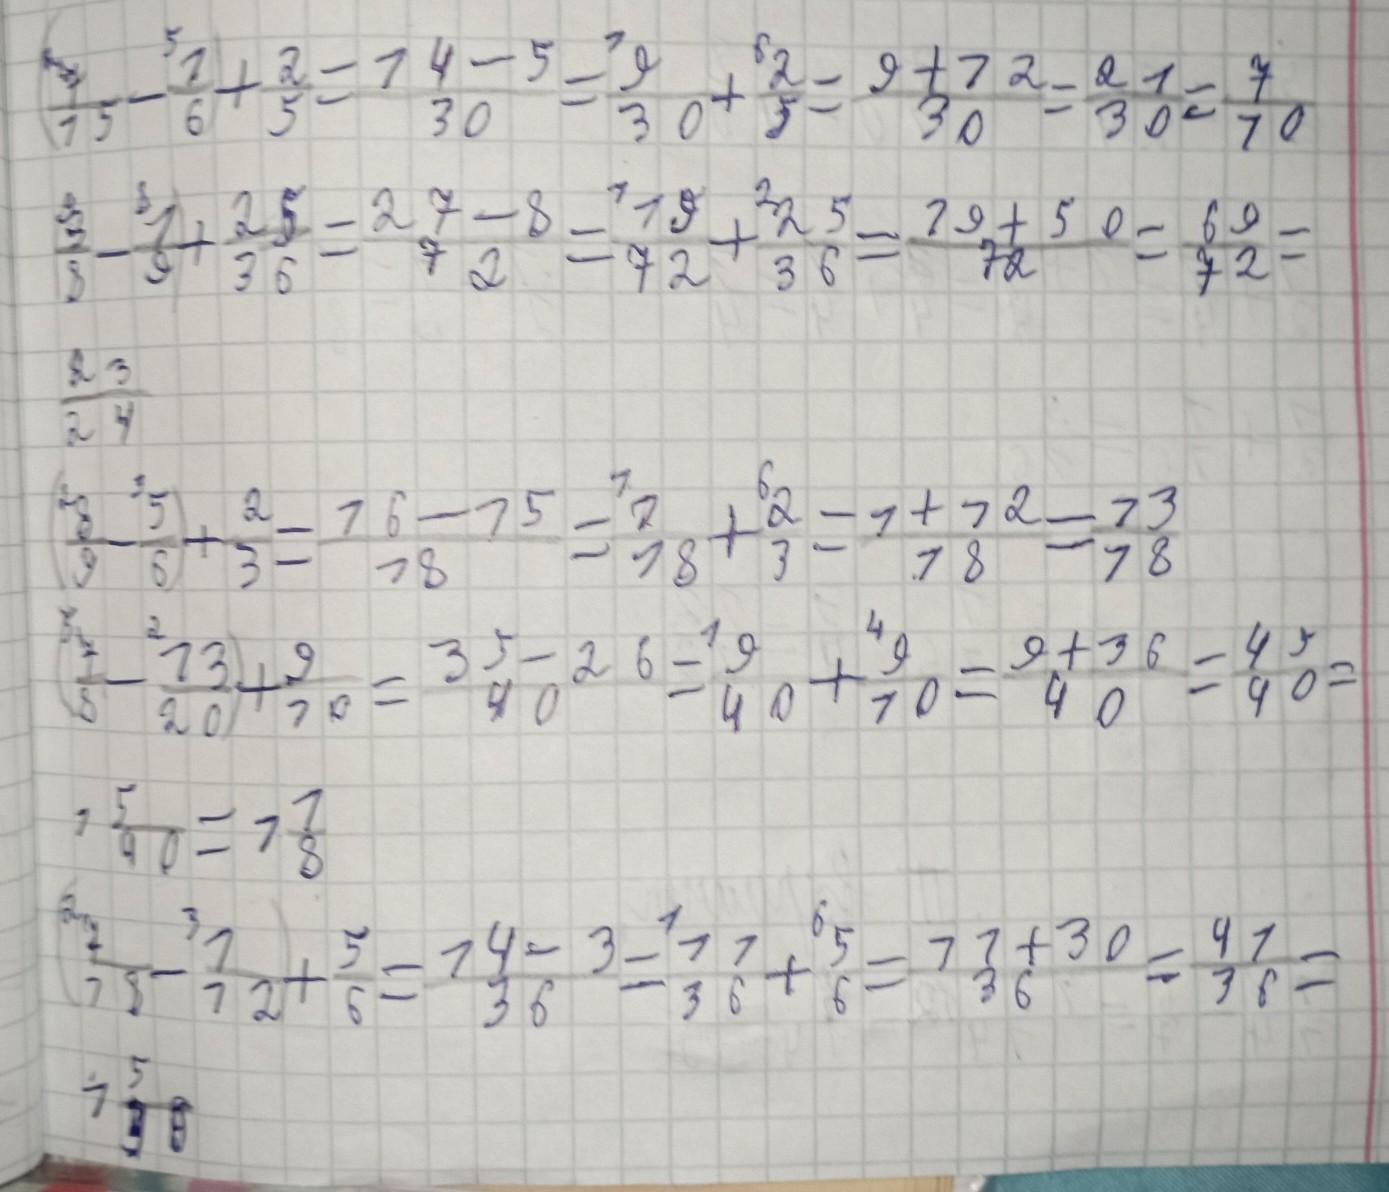 (7/15 - 5 1/6) + 2/5 = 14-5/30 = 1 9/30 + 6 2/5 = 9+12/30 = 21/30 = 7/10
3/8 - 8 1/9) + 25/36 = 27-8/72 = 1 19/72 + 2 25/36 = 19+50/72 = 69/72 =
23/24
(2 8/9 - 3 5/6) + 2/3 = 16-15/18 = 1 1/18 + 6 2/3 = 1+12/18 = 13/18
(5 7/8 - 2 13/20) + 9/10 = 35-26/40 = 1 9/40 + 4 9/10 = 9+36/40 = 45/40 =
1 5/40 = 1 1/8
(2 7/18 - 3 1/12) + 5/6 = 14-3/36 = 1 11/36 + 6 5/6 = 11+30/36 = 41/36 =
1 5/